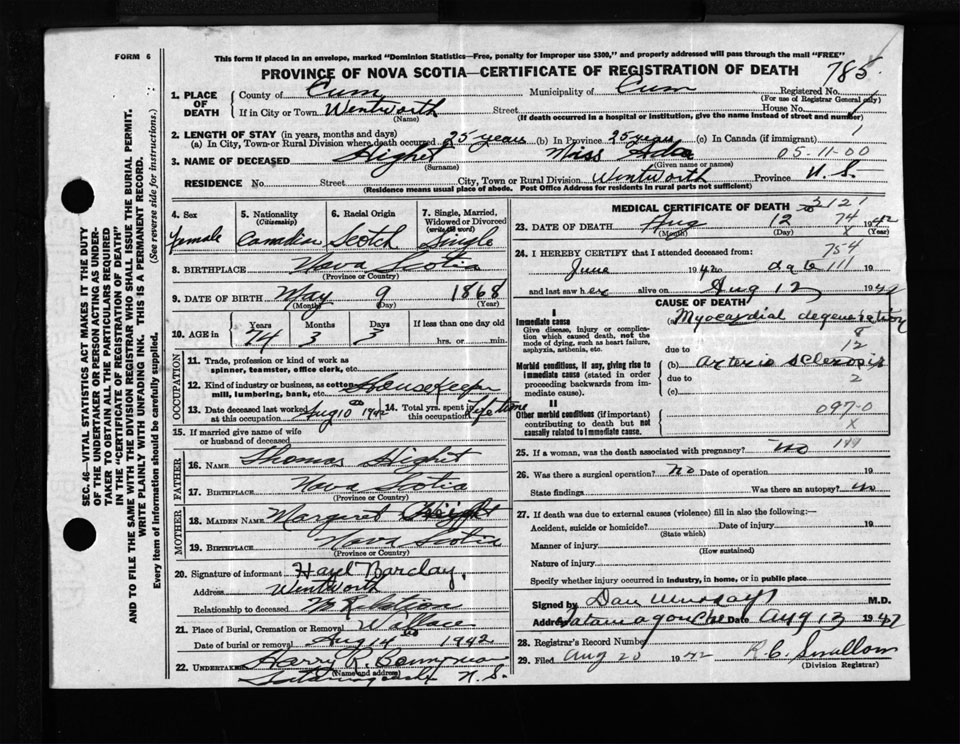 FORM 6
This form if placed in an envelope, marked "Dominion Statistics—Free, penalty for improper use $300," and properly addressed will pass through the mail "FREE"
PROVINCE OF NOVA SCOTIA—CERTIFICATE OF REGISTRATION OF DEATH
785
SEC. 46—VITAL STATISTICS ACT MAKES IT THE DUTY
OF THE UNDERTAKER OR PERSON ACTING AS UNDER-
TAKER TO OBTAIN ALL THE PARTICULARS REQUIRED
IN THE "CERTIFICATE OF REGISTRATION OF DEATH"
AND TO FILE THE SAME WITH THE DIVISION REGISTRAR WHO SHALL ISSUE THE BURIAL PERMIT.
WRITE PLAINLY WITH UNFADING INK. THIS IS A PERMANENT RECORD.
Every item of information should be carefully supplied. (See reverse side for instructions.)
1. PLACE OF DEATH
County of Cum Municipality of Cum Registered No.
(For use of Registrar General only)
If in City or Town Wentworth Street House No.
(Name) (If death occurred in a hospital or institution, give the name instead of street and number)
2. LENGTH OF STAY (in years, months and days)
(a) In City, Town or Rural Division where death occurred 25 years (b) In Province 25 years (c) In Canada (if immigrant)
3. NAME OF DECEASED Highet Miss
(Surname) (Given name or names)
05-11-00
RESIDENCE No. Street City, Town or Rural Division Wentworth Province N. S.
(Residence means usual place of abode. Post Office Address for residents in rural parts not sufficient)
4. Sex female
5. Nationality (Citizenship) Canadian
6. Racial Origin Scotch
7. Single, Married, Widowed or Divorced (write the word) Single
8. BIRTHPLACE Nova Scotia
(Province or Country)
9. DATE OF BIRTH May 9 1868
(Month) (Day) (Year)
10. AGE in Years 74 Months 3 Days 3 If less than one day old hrs. or min.
OCCUPATION
11. Trade, profession or kind of work as spinner, teamster, office clerk, etc.
12. Kind of industry or business, as cotton mill, lumbering, bank, etc. Housekeeper
13. Date deceased last worked at this occupation Aug 10th 1942
14. Total yrs. spent in this occupation lifetime
15. If married give name of wife or husband of deceased
FATHER
16. NAME Thomas Highet
17. BIRTHPLACE Nova Scotia
(Province or Country)
MOTHER
18. MAIDEN NAME Margaret
19. BIRTHPLACE Nova Scotia
(Province or Country)
20. Signature of informant Hazel Barclay,
Address Wentworth
Relationship to deceased No Relation
21. Place of Burial, Cremation or Removal Wallace
Date of burial or removal Aug 14th 1942
22. UNDERTAKER Harry R.
(Name and address)
N. S.
MEDICAL CERTIFICATE OF DEATH
3127
23. DATE OF DEATH Aug 12 1942
(Month) (Day) (Year)
74
X
24. I HEREBY CERTIFY that I attended deceased from:
754
June 1942 to date 19
111
and last saw her alive on Aug 12 1942
CAUSE OF DEATH
I
Immediate cause
Give disease, injury or complication which caused death, not the mode of dying, such as heart failure, asphyxia, asthenia, etc.
(a) Myocardial degeneration
8
12
due to
Morbid conditions, if any, giving rise to immediate cause (stated in order proceeding backwards from immediate cause).
(b) Arterio sclerosis
due to
2
(c)
II
Other morbid conditions (if important) contributing to death but not causally related to immediate cause.
097-0
X
25. If a woman, was the death associated with pregnancy? no
149
26. Was there a surgical operation? no Date of operation 19
State findings Was there an autopsy? no
27. If death was due to external causes (violence) fill in also the following:—
Accident, suicide or homicide? Date of injury 19
(State which)
Manner of injury
(How sustained)
Nature of injury
Specify whether injury occurred in industry, in home, or in public place
Signed by Dan Murray M.D.
Address Tatamagouche Date Aug 13 1942
28. Registrar's Record Number
29. Filed Aug 20 1942
(Division Registrar)